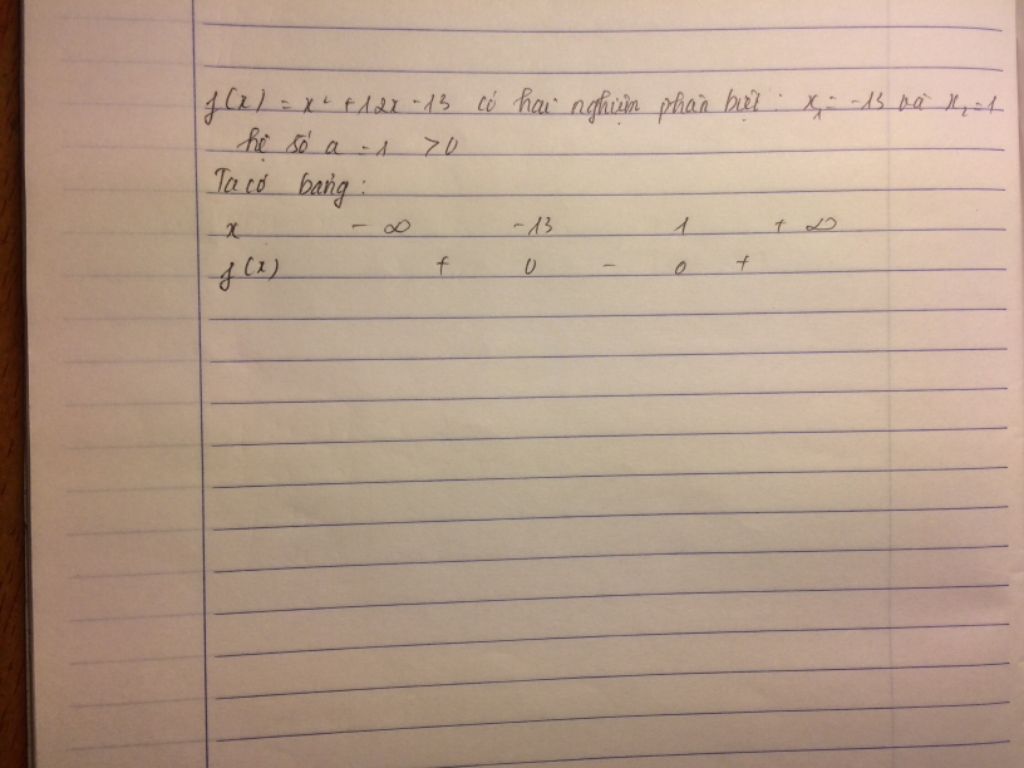 f(x) = x² + 12x - 13 có hai nghiệm phân biệt : x₁ = -13 và x₂ = 1
hệ số a = 1 > 0
Ta có bảng :
x - ∞ -13 1 + ∞
f(x) + 0 - 0 +